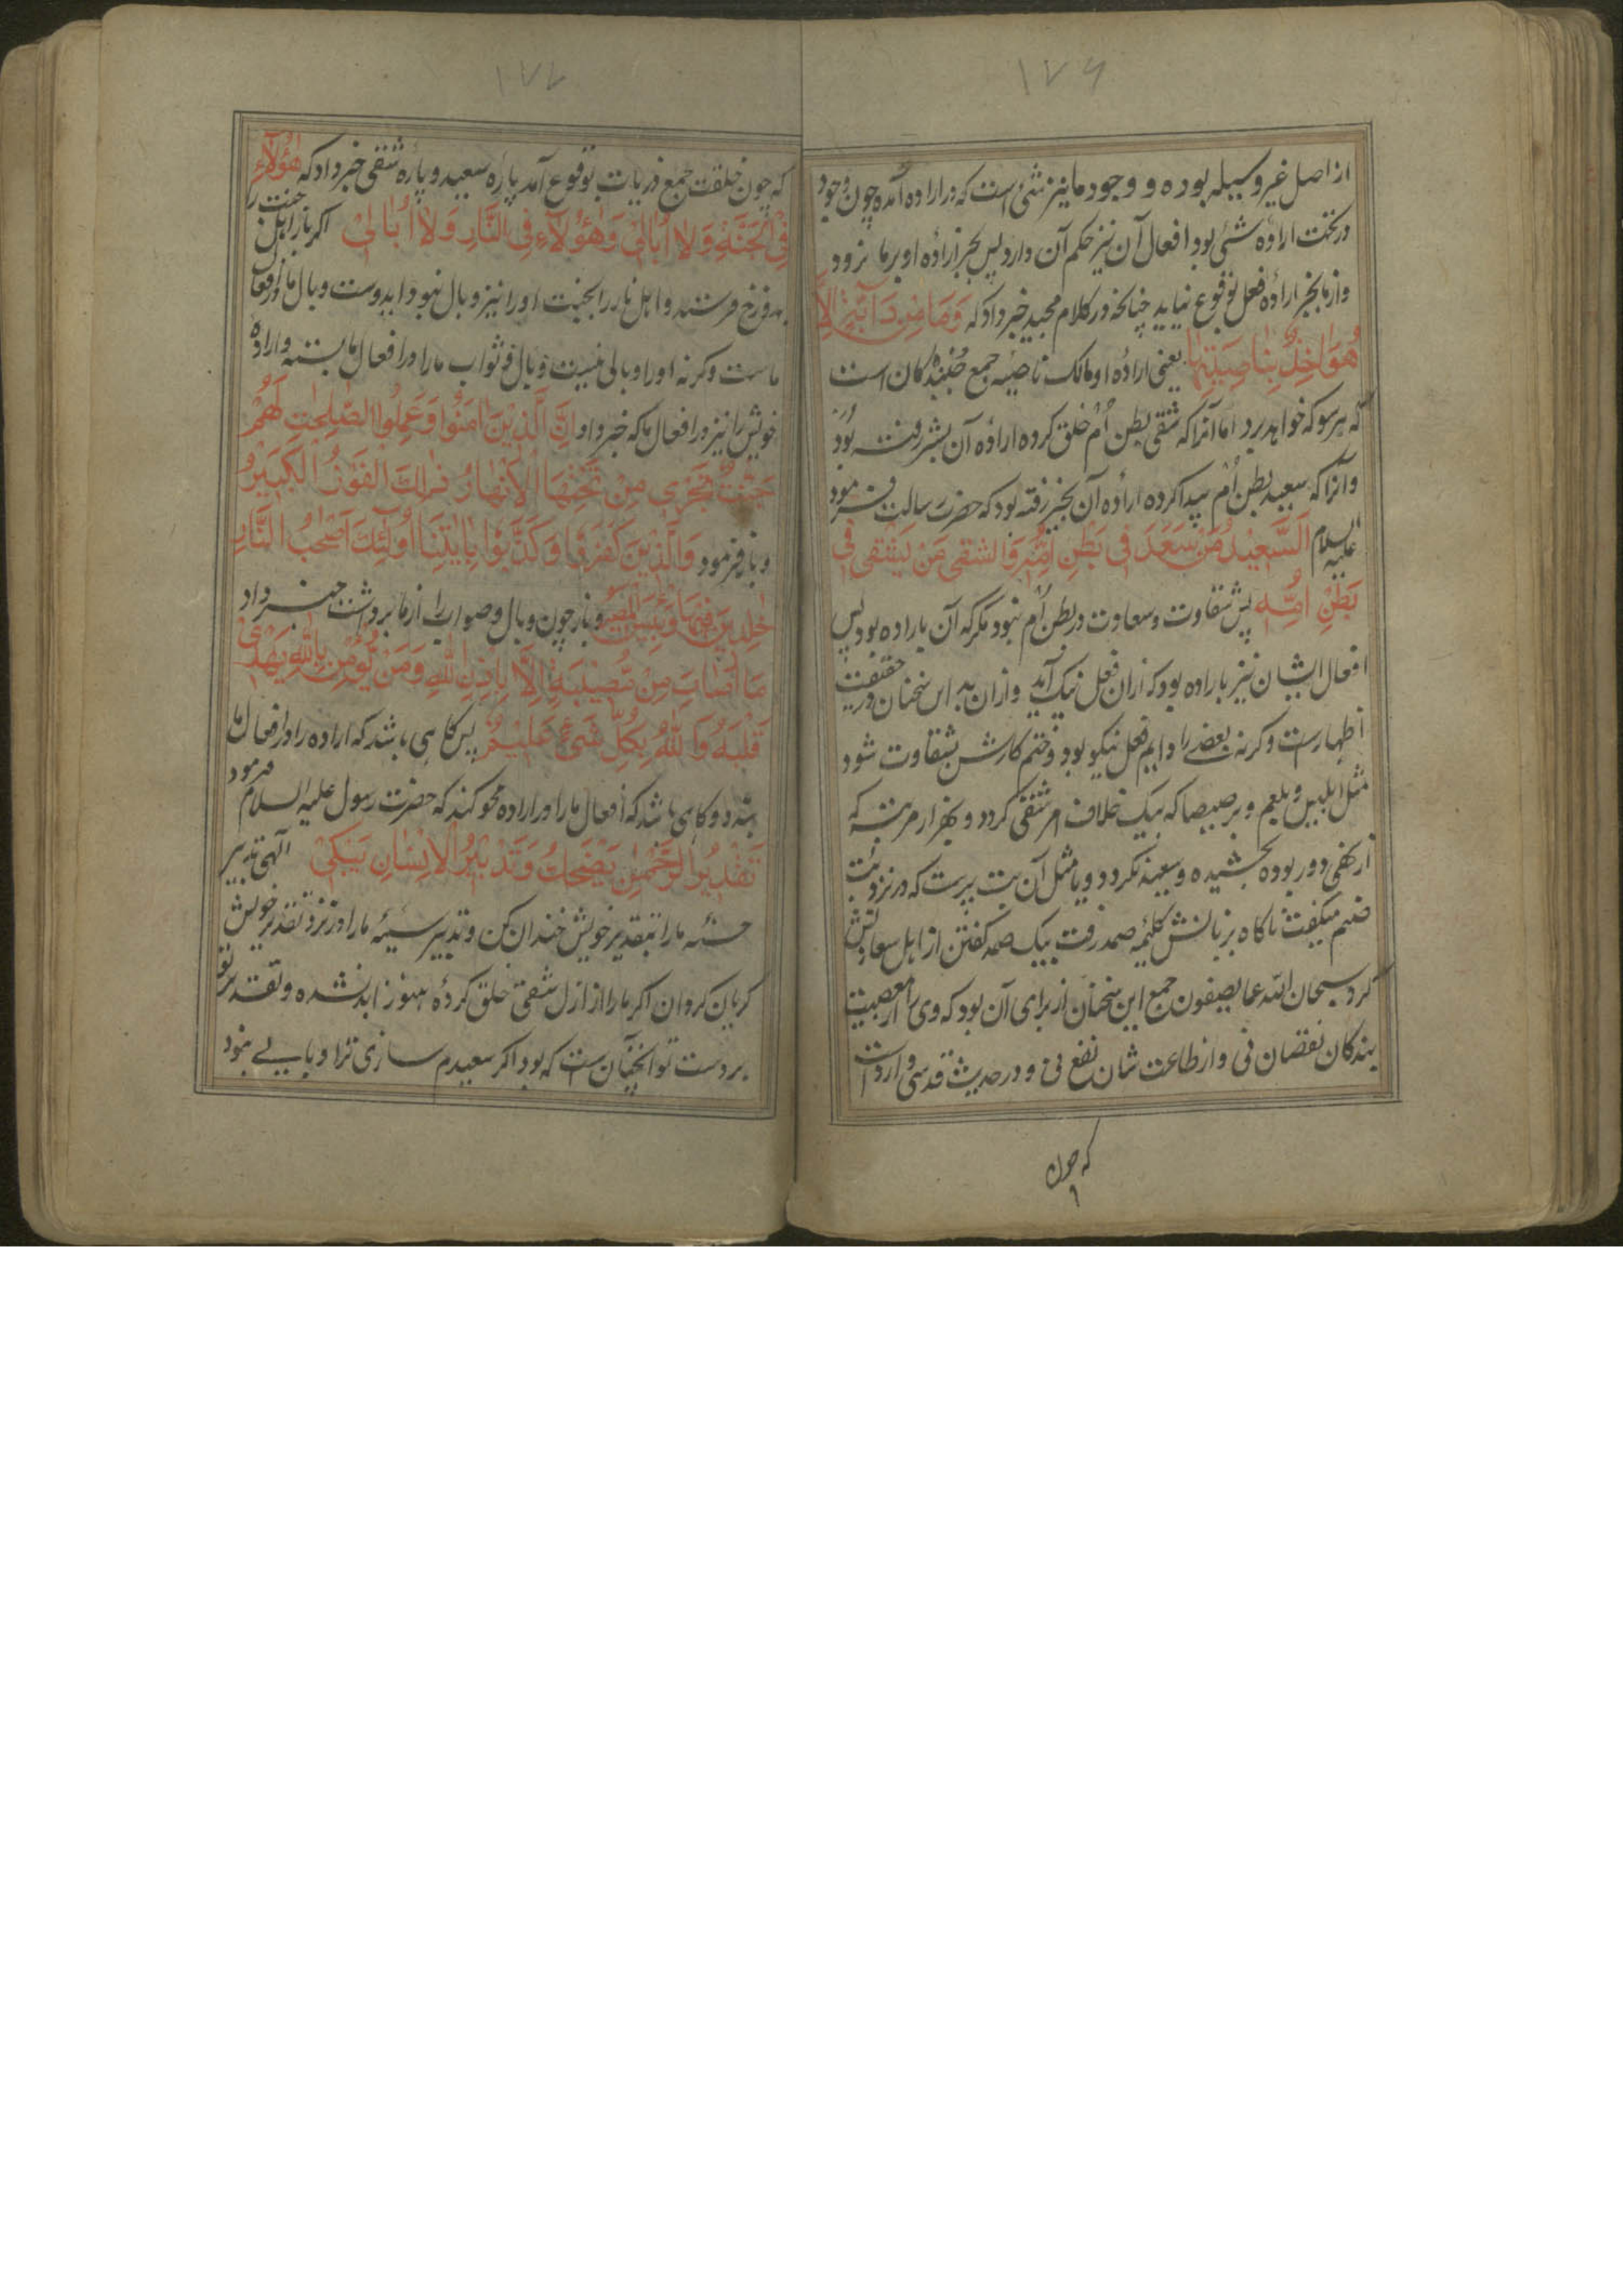 ۱۷۶
از اصل غیر وسیله بوده و وجود ما نیز شئ است که در اراده آمده چون وجود
در تحت اراده شئ بود افعال آن نیز حکم آن دارد پس بجز ارادهٔ او بر ما نرود
و از ما بجز ارادهٔ فعل بوقوع نیاید چنانچه در کلام مجید خبر داد که وَمَا مِن دَآبَّةٍ اِلَّا
هُوَ اٰخِذٌ بِنَاصِیَتِهَا یعنی ارادهٔ او مالک ناصیهٔ جمع جنبندکان است
که هر سو که خواهد برد اما آنرا که شقی بطن اُم خلق کرده ارادهٔ آن بشر رفته بود
و آنرا که سعید بطن اُم پیدا کرده ارادهٔ آن بخیر رفته بود که حضرت رسالت فرمود
علیه السلام اَلسَّعِیدُ مَن سَعَدَ فِی بَطنِ اُمِّهِ وَالشقی مَن یَشقی فِی
بَطْنِ اُمِّهِ پس شقاوت و سعادت در بطن اُم نبود مکر که آن باراده بود پس
افعال ایشان نیز باراده بود که ازان فعل نیک آید و ازان بد این سخنان در حقیقت
اظهارست و کرنه بعضے را دایم فعل نیکو بود و ختم کارش بشقاوت شود
مثل ابلیس و بلعم و برصیصا که بیک خلاف امر شقی کردد و بهزار مرتبه که
از نهی دور بوده بخشیده و سعید نکردد و یا مثل آن بت پرست که در نزد بت
صنم میکفت ناکاه بر زبانش کلمهٔ صمد رفت بیک صمد کفتن از اهل سعادتش
کرد سبحان الله عما یصفون جمع این سخنان از برای آن بود که وی را از معصیت
بندکان نقصان نی و از طاعت شان نفع نی و در حدیث قدسی وارد است
که چون
۱۷۷
که چون خلقت جمع ذریات بوقوع آمد پارهٔ سعید و پارهٔ شقی خبر داد که هٰؤُلَآءِ
فِی الْجَنَّةِ وَلَا اُبَالِیْ وَهٰؤُلَآءِ فِی النَّارِ وَلَا اُبَالِیْ اکر باز اهل جنت را
بدوزخ فرستد و اهل نار را بجنت او را نیز وبال نبود ابدوست وبال ما از افعال
ماست و کرنه او را وبالی نیست وبال و ثواب ما را در افعال ما بسته و ارادهٔ
خویش را نیز در افعال ما که خبر داد اِنَّ الَّذِیْنَ اٰمَنُوْا وَعَمِلُوا الصّٰلِحٰتِ لَهُمْ
جَنّٰتٌ تَجْرِیْ مِنْ تَحْتِهَا الْاَنْهٰارُ ذٰلِكَ الْفَوْزُ الْكَبِیْرُ
و باز فرمود وَالَّذِیْنَ كَفَرُوْا وَكَذَّبُوْا بِاٰیٰتِنَا اُولٰٓئِكَ اَصْحٰبُ النَّارِ
خٰلِدِیْنَ فِیْهَا وَبِئْسَ الْمَصِیْرُ و باز چون وبال و صواب را از ما برداشت خبر داد
مَا اَصَابَ مِنْ مُّصِیْبَةٍ اِلَّا بِاِذْنِ اللّٰهِ وَمَنْ یُّؤْمِنْ بِاللّٰهِ یَهْدِیْ
قَلْبَهُ وَاللّٰهُ بِكُلِّ شَیْءٍ عَلِیْمٌ پس کاهی باشد که اراده را در افعال ما
بندد و کاهی باشد که افعال ما را در اراده محو کند که حضرت رسول علیه السلام فرمود
تَقْدِیْرُ الرَّحْمٰنِ یَضْحَكُ وَتَدْبِیْرُ الْاِنْسَانِ یَبْکِیْ الهی تدبیر
حسنهٔ ما را بتقدیر خویش خندان کن و تدبیر سیئهٔ ما را در نزد تقدیر خویش
کریان کردان اکر ما را از ازل شقی خلق کردهٔ هنوز ابد نشده و تقدیر تو
بر دست تو آنچنان است که بود اکر سعیدم سازی ترا وبالے نبود